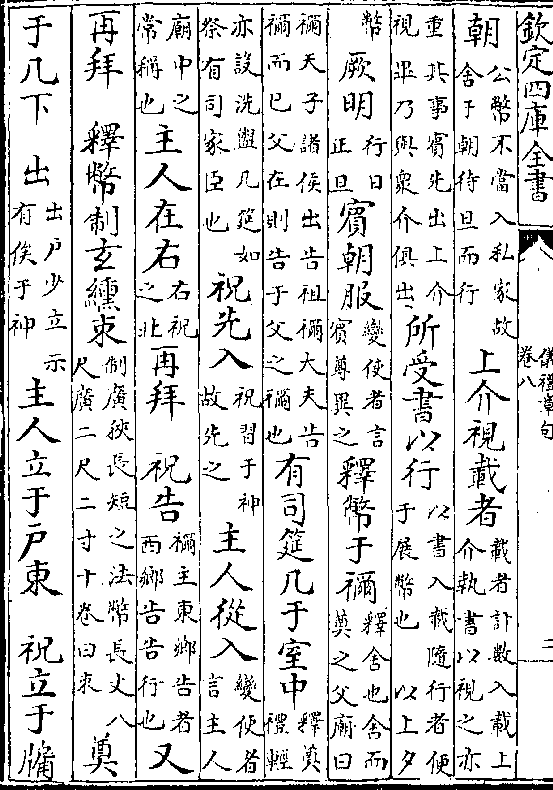 欽定四庫全書
儀禮章句
卷八
二
朝公幣不當入私家故舍于朝待旦而行上介視載者載者計數入載上介執書以視之亦
重其事賓先出上介視畢乃與衆介俱出所受書以行以書入載隨行者便于展幣也 以上夕
幣 厥明行日正旦賓朝服變使者言賓尊異之釋幣于禰釋舍也舍而奠之父廟曰
禰天子諸侯出告祖禰大夫告禰而已父在則告于父之禰也有司筵几于室中釋奠禮輕
亦設洗盥几筵如祭有司家臣也祝先入祝習于神故先之主人從入變使者言主人
廟中之常稱也主人在右右祝之北再拜 祝告禰主東鄉告者西鄉告告行也又
再拜 釋幣制玄纁束制廣狹長短之法幣長丈八尺廣二尺二寸十卷曰束奠
于几下 出出户少立示有俟于神主人立于户東 祝立于牖